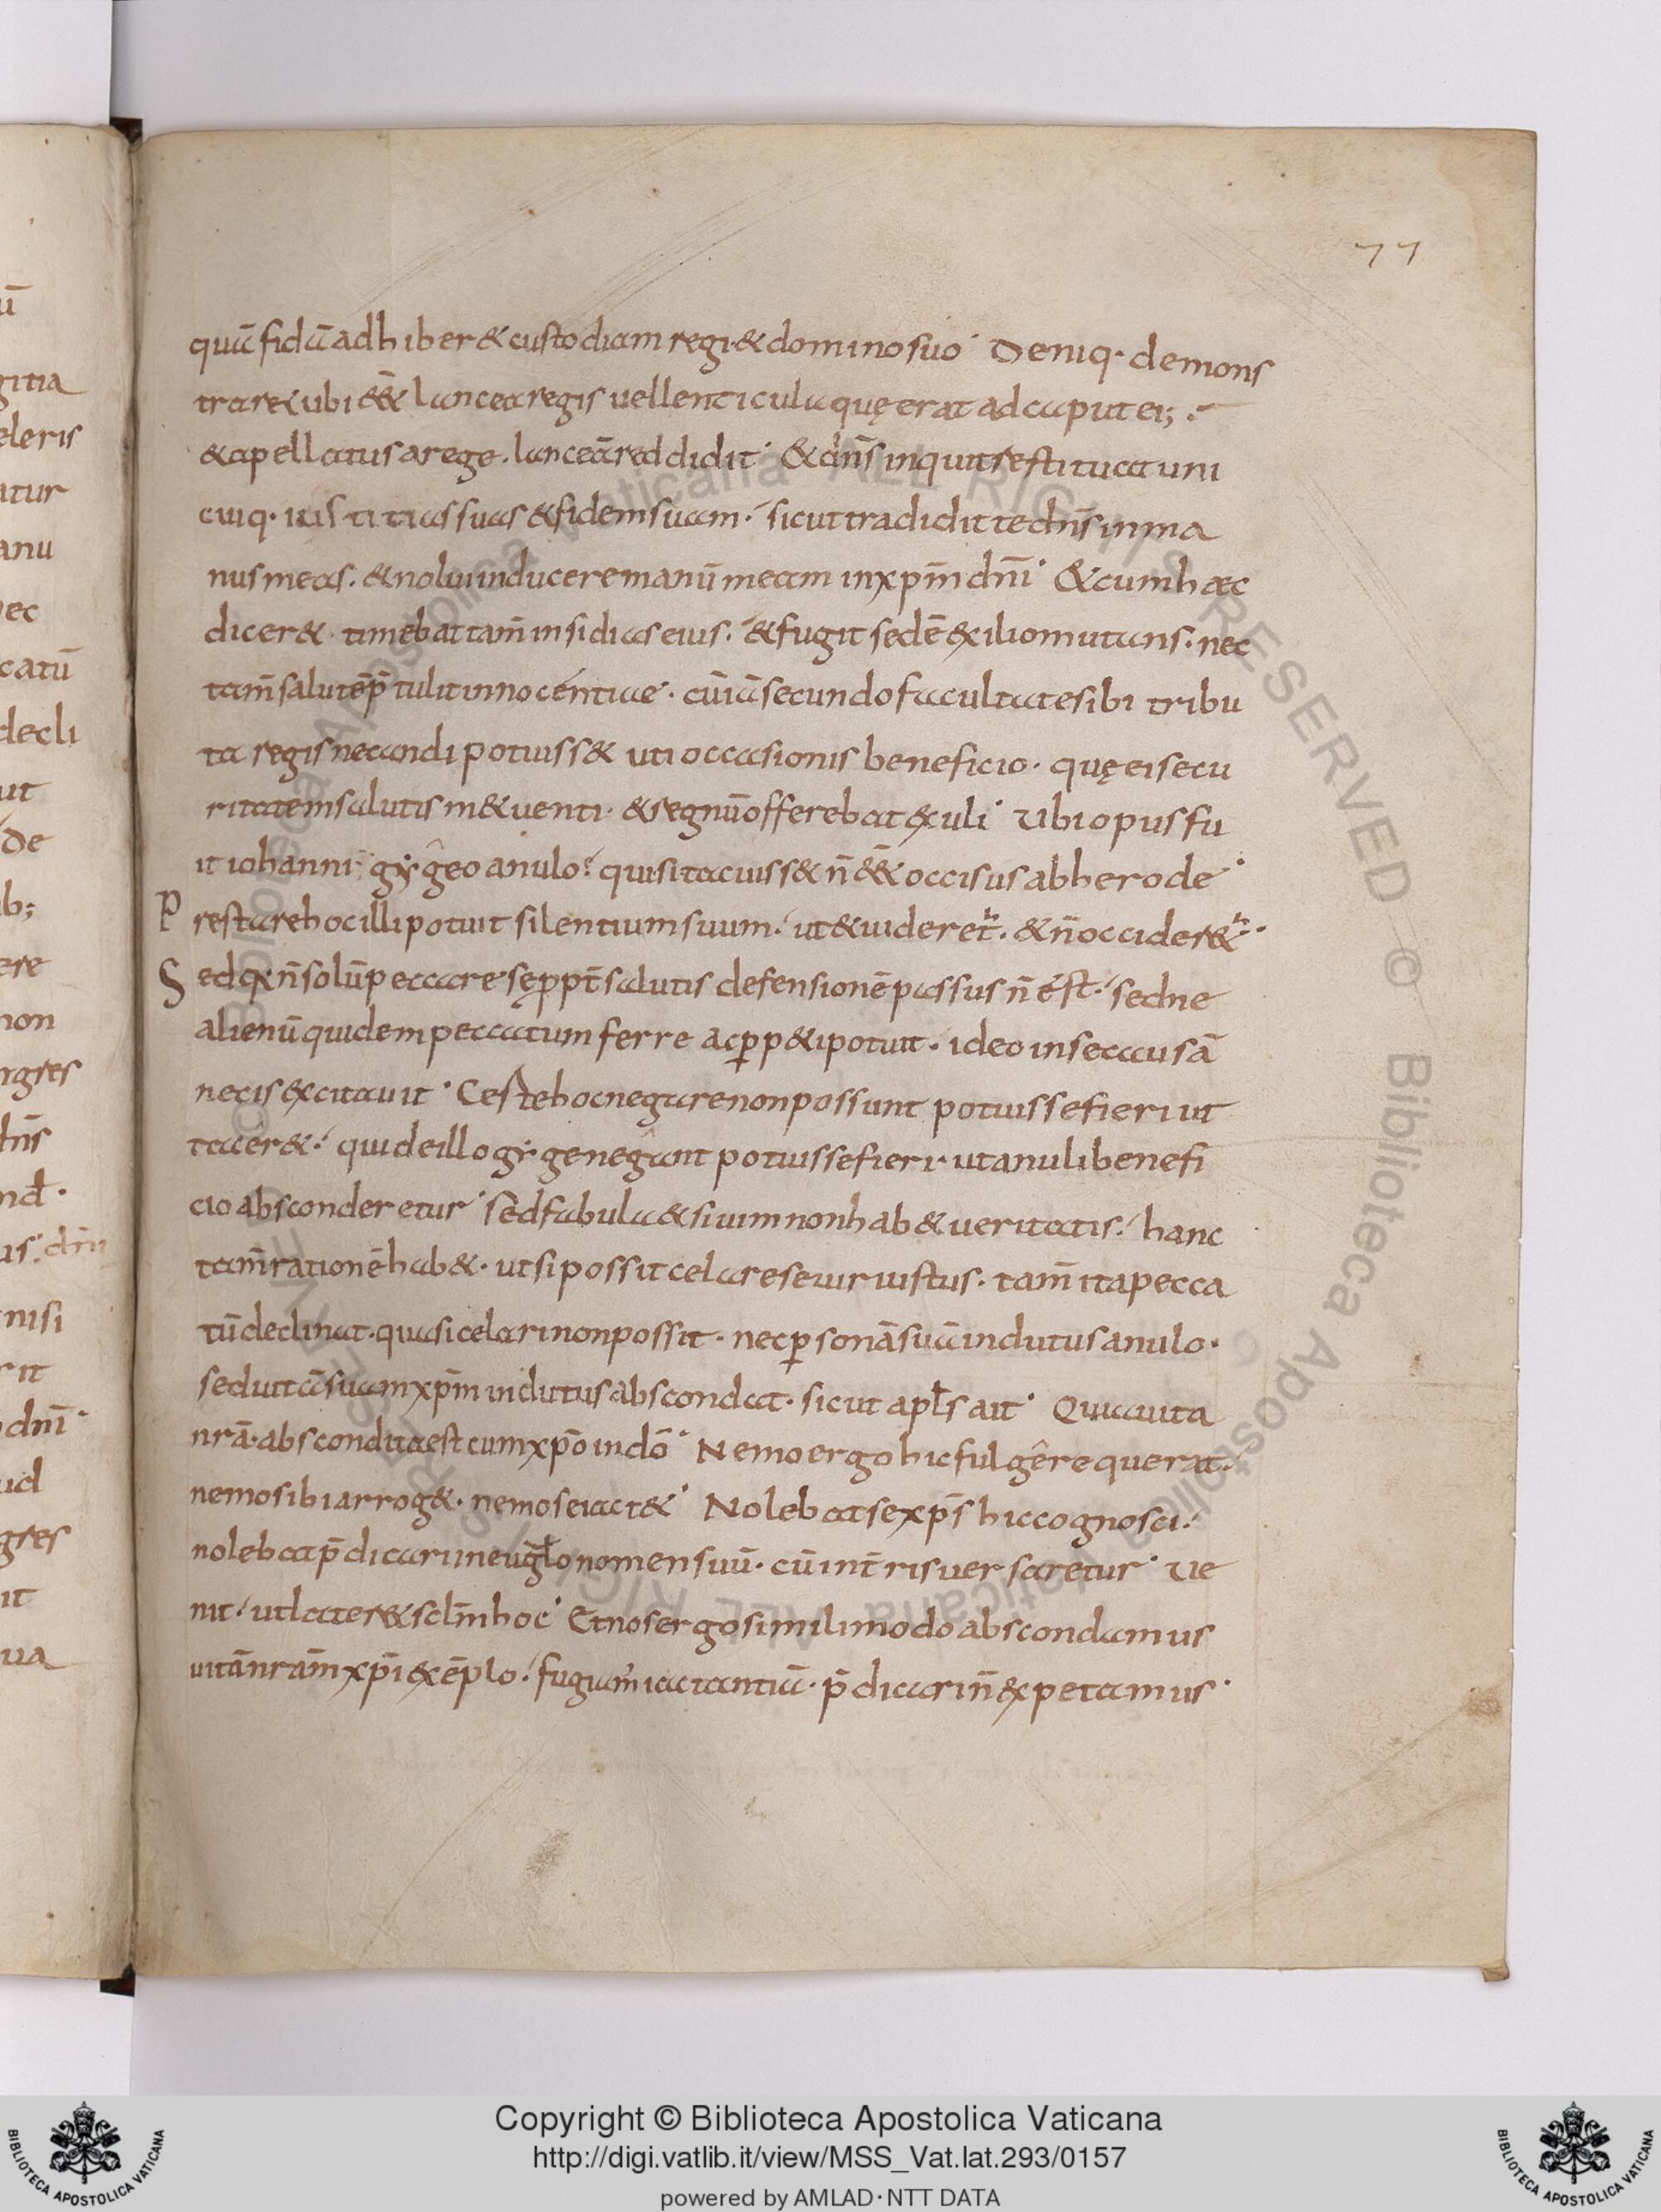 77
quā fidā adhiber& custodiam regi & domino suo· Deniq· demons
trare& ubi e&& lancea regis uel lenticula quę erat ad caput ei;·
& apellatus a rege· lanceā reddidit· & dn̄s inquit restituat uni
cuiq· iustitias suas & fidem suam· sicut tradidit te dn̄s in ma
nus meas· & nolui inducere manū meam in xp̄m dn̄i· & cum hæc
dicer& timebat tam̄ insidias eius· & fugit sedē exilio mutans· nec
tam̄ salutē p̄tulit innocentiae· cū iā secundo facultate sibi tribu
ta regis necandi potuiss& uti occasionis beneficio· quę ei secu
ritatem salutis m&uenti· & regnū offerebat exuli· Ubi opus fu
it iohanni gygeo anulo? qui si tacuiss& n̄ e&& occisus ab herode·
Prestare hoc illi potuit silentium suum· ut & uideret^r· & n̄ occider&^r·
Sed q̄ n̄ solū peccare se ppt̄ salutis defensionē passus n̄ est· sed ne
alienū quidem peccatum ferre ac pp&i potuit· ideo in se causā
necis excitauit· Certe hoc negare non possunt potuisse fieri ut
tacer&· qui de illo gyge negant potuisse fieri ut anuli benefi
cio absconderetur· sed fabula &si uim non hab& ueritatis· hanc
tam̄ rationē hab&· ut si possit celare se uir iustus· tam̄ ita pecca
tū declinat· quasi celari non possit· nec psonā suā indutus anulo·
sed uitā suam xp̄m indutus abscondat· sicut apl̄s ait· Quia uita
nrā· abscondita est cum xp̄o in dō· Nemo ergo hic fulgere querat·
nemo sibi arrog&· nemo se iact&· Nolebat se xp̄s hic cognosci·
nolebat p̄dicari in eugl̄o nomen suū· cū in t̄ris uersaretur· Ue
nit· ut later& sclm̄ hoc· Et nos ergo simili modo abscondamus
uitā nram̄ xp̄i exēplo· fugiam' iactantiā· p̄dicari n̄ expetamus·
Copyright © Biblioteca Apostolica Vaticana
http://digi.vatlib.it/view/MSS_Vat.lat.293/0157
powered by AMLAD·NTT DATA